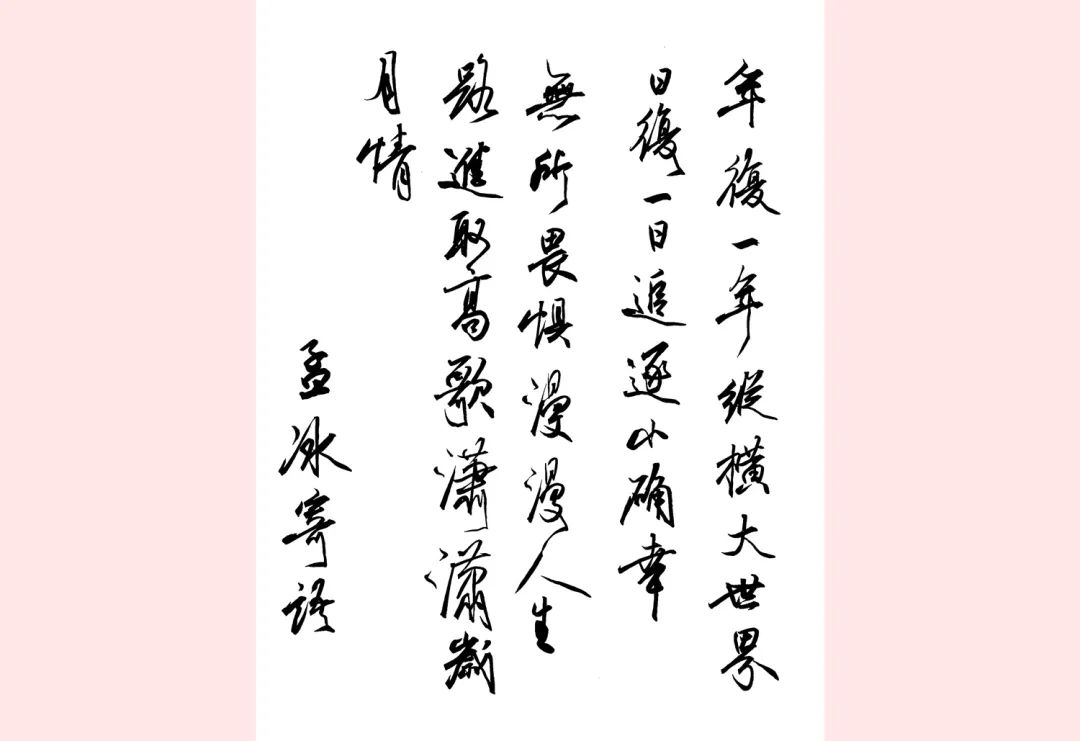 年復一年縱橫大世界
日復一日追逐小确幸
無所畏惧漫漫人生
路進取高歌瀟瀟歲
月情
孟冰寄語